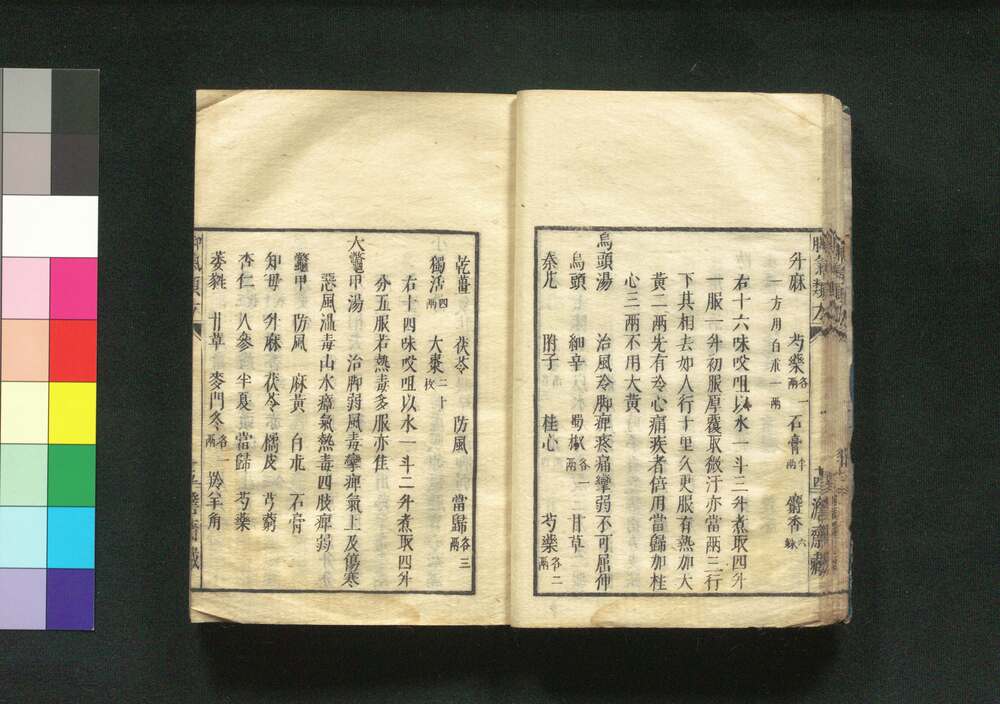 升麻　芍藥各一兩　石膏半兩　麝香六銖
一方用白朮一兩
右十六味㕮咀以水一斗三升煮取四升
一服一升初服厚覆取微汗亦當兩三行
下其相去如人行十里久更服有熱加大
黃二兩先有冷心痛疾者倍用當歸加桂
心三兩不用大黃
烏頭湯　治風冷脚痺疼痛攣弱不可屈伸
烏頭　細辛　蜀椒各一兩　甘草
秦艽　附子　桂心　芍藥各二兩
乾薑　茯苓　防風　當歸各三兩
獨活四兩　大棗二十枚
右十四味㕮咀以水一斗二升煮取四升
分五服若熱毒多服亦佳
大鼈甲湯　治脚弱風毒攣痺氣上及傷寒
惡風溫毒山水瘴氣熱毒四肢痺弱
鼈甲　防風　麻黃　白朮　石膏
知母　升麻　茯苓　橘皮　芎藭
杏仁　人參　半夏　當歸　芍藥
萎蕤　甘草　麥門冬各一兩　羚羊角